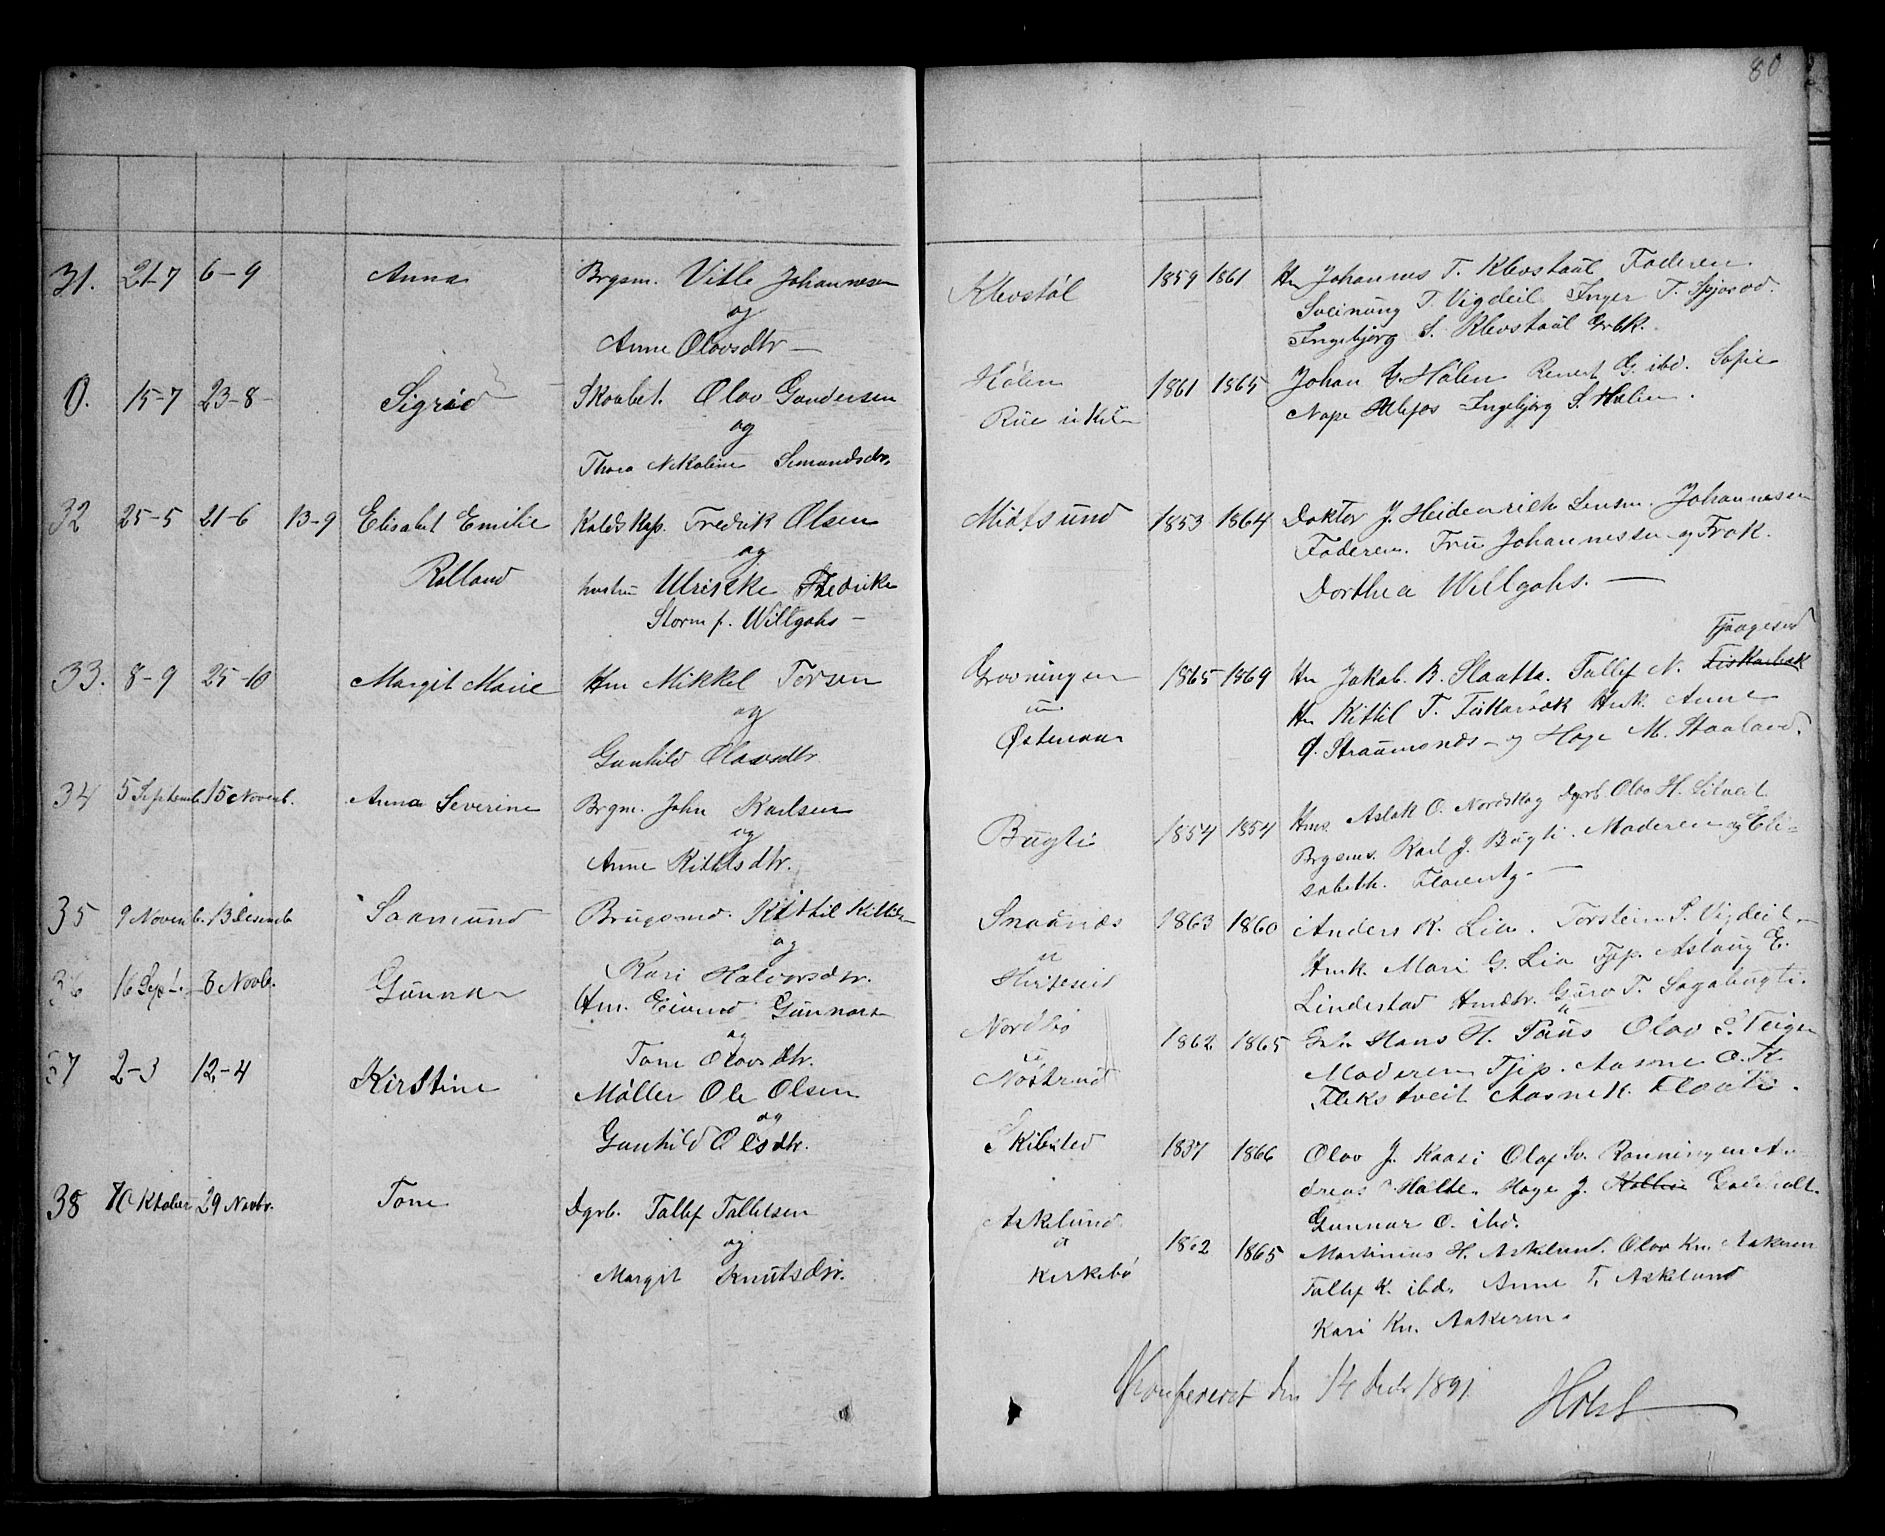 80
31. 21-7 6-9 Anna Brgsm. Vitle Johannesen
og
Anne Olovsdtr —
Klevstøl 1859 1861 Hm Johannes T. Klevstaúl Faderen.
Sveinung T. Vigdeil Inger T. Spjosod.
Ingebjørg S. Klevstaúl Grbk.
0. 15-7 23-8 Sigrid Skoabet. Olav Gundersen
og
Thora Nikoline Semundsdtr.
Hølen
Rúe i
1861 1865 Johan G. Hølen G. ibd. Sofie
Nape Ulefos Ingebjørg S. Hølen.
32 25-5 21-6 13-9 Elisabet Emilie Kaldskap. Fredrik Olsen
Rolland og
hustru Ulrikke Fredrikke
Storm f. Willgohs —
Midtsund 1853 1864 Doktor J. Heidenreich Lensm. Johannesen
Faderen. Frú Johannessen og Frøk.
Dorthea Willgohs. —
33. 8-9 25-10 Margit Marie Hm Mikkel Torsen
og
Gunhild Olavsdtr.
Grovningen
Østenaa
1865 1869 Tjaagesud
Hm Jakob. B. Slaatta. Tallef N. Fiskarbæk
Hm Kittil T. Fiskarbæk Hmk. Anne
O. Straúmsnæs og Hæge M. Staaland.
34 5 Septemb. 15 Novemb. Anna Severine Brgm. John Karlsen
og
Anne Kittilsdtr.
Búgti 1854 1854 Hms. Aslak O. Nordskog Dgrb. Olav H.
Brgsms. Karl J. Búgti. Moderen og Eli-
sabeth. Florenty. —
35 9 Novemb. 13 Desemb Saamúnd Brúgsmd. Kittil Kittilsen
og
Kari Halvorsdtr.
Snaúnæs
Hirtesúd
1863 1860 Anders K. Lia. Torstein S. Vigdeil
Hmk. Mari G. Lia Tjp. Aslaúg E.
Lindestad Hmdtr. Gúro T. Sagabúgti.
36 16 Sep 8 Novb. Gúnnar Hm. Eivind Gúnnars
og
Tone Olavsdtr.
Nordbø
Nøstrud
1862 1865 Hans H. Paús Olav S. Teigen
Moderen Tjp. Aasne O. K.
Flekstveit Aasne K. Flaati.
37 2-3 12-4 Kirstine Møller Ole Olsen
og
Gunhild Olsdtr.
Skibsted 1837 1866 Olav J. Kaasi Olaf Sv. Rønningen An-
dreas Holte. Hæge J. Godtholt.
Gúnnar O. ibd.
38 Oktober 29 Novbr. Tone Dgrb. Tallef Tallefsen
og
Margit Knútsdtr.
Asklúnd
Kirkebø
1862 1865 Martinius H. Asklund. Olav Kn. Aakeren
Tallef K. ibd. Anne T. Asklund
Kari Kn. Aakeren.
Konfereret den 14 Decbr 1891.
Holst